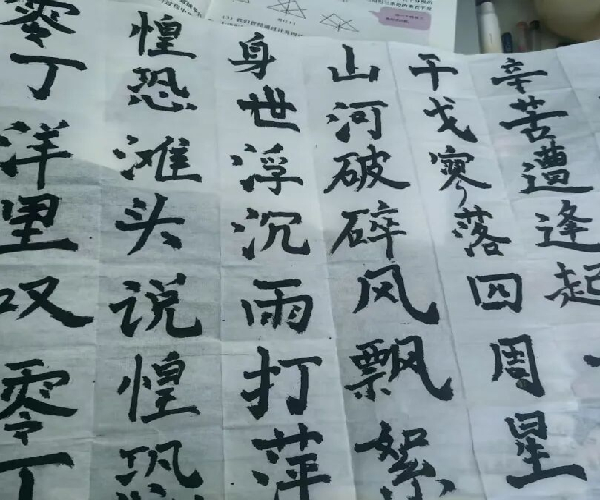 辛苦遭逢起一
干戈寥落四周星
山河破碎风飘絮
身世浮沉雨打萍
惶恐滩头说惶恐
零丁洋里叹零丁